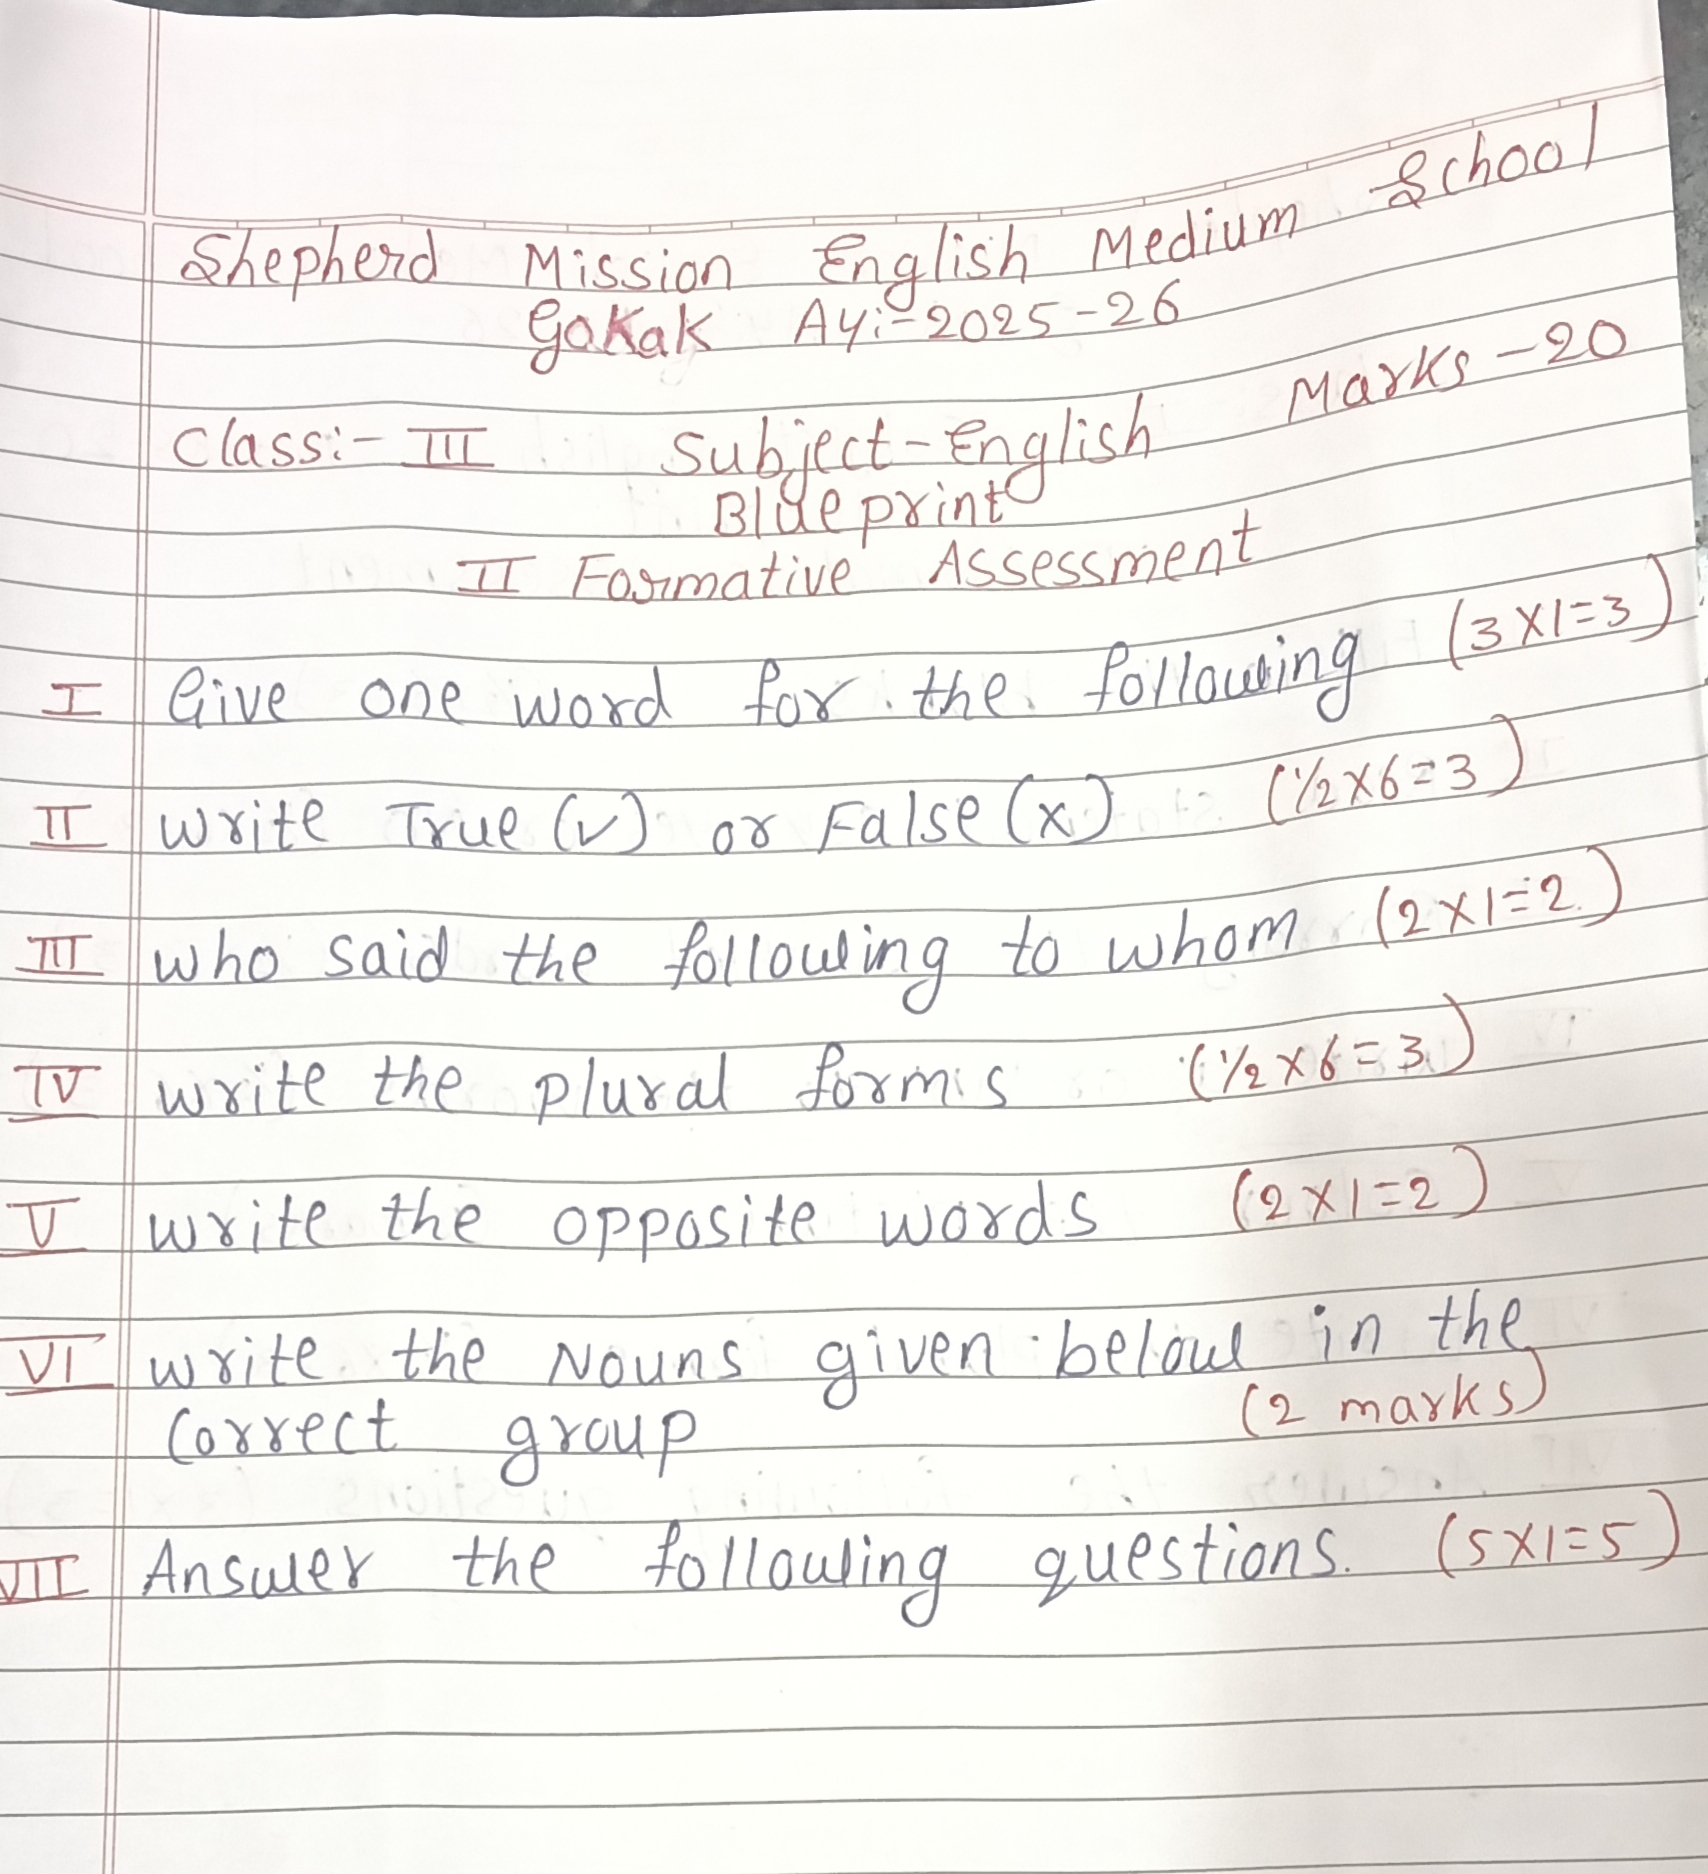 Shepherd Mission English Medium School
Gokak Ay:- 2025-26
Marks - 20
Class:- III Subject - English
Blueprint
II Formative Assessment
I Give one word for the following (3X1=3)
II Write True (✓) or False (x) (½X6=3)
III who said the following to whom (2X1=2)
IV write the plural forms (½X6=3)
V write the opposite words (2X1=2)
VI write the Nouns given below in the
Correct group (2 marks)
VII Answer the following questions. (5X1=5)